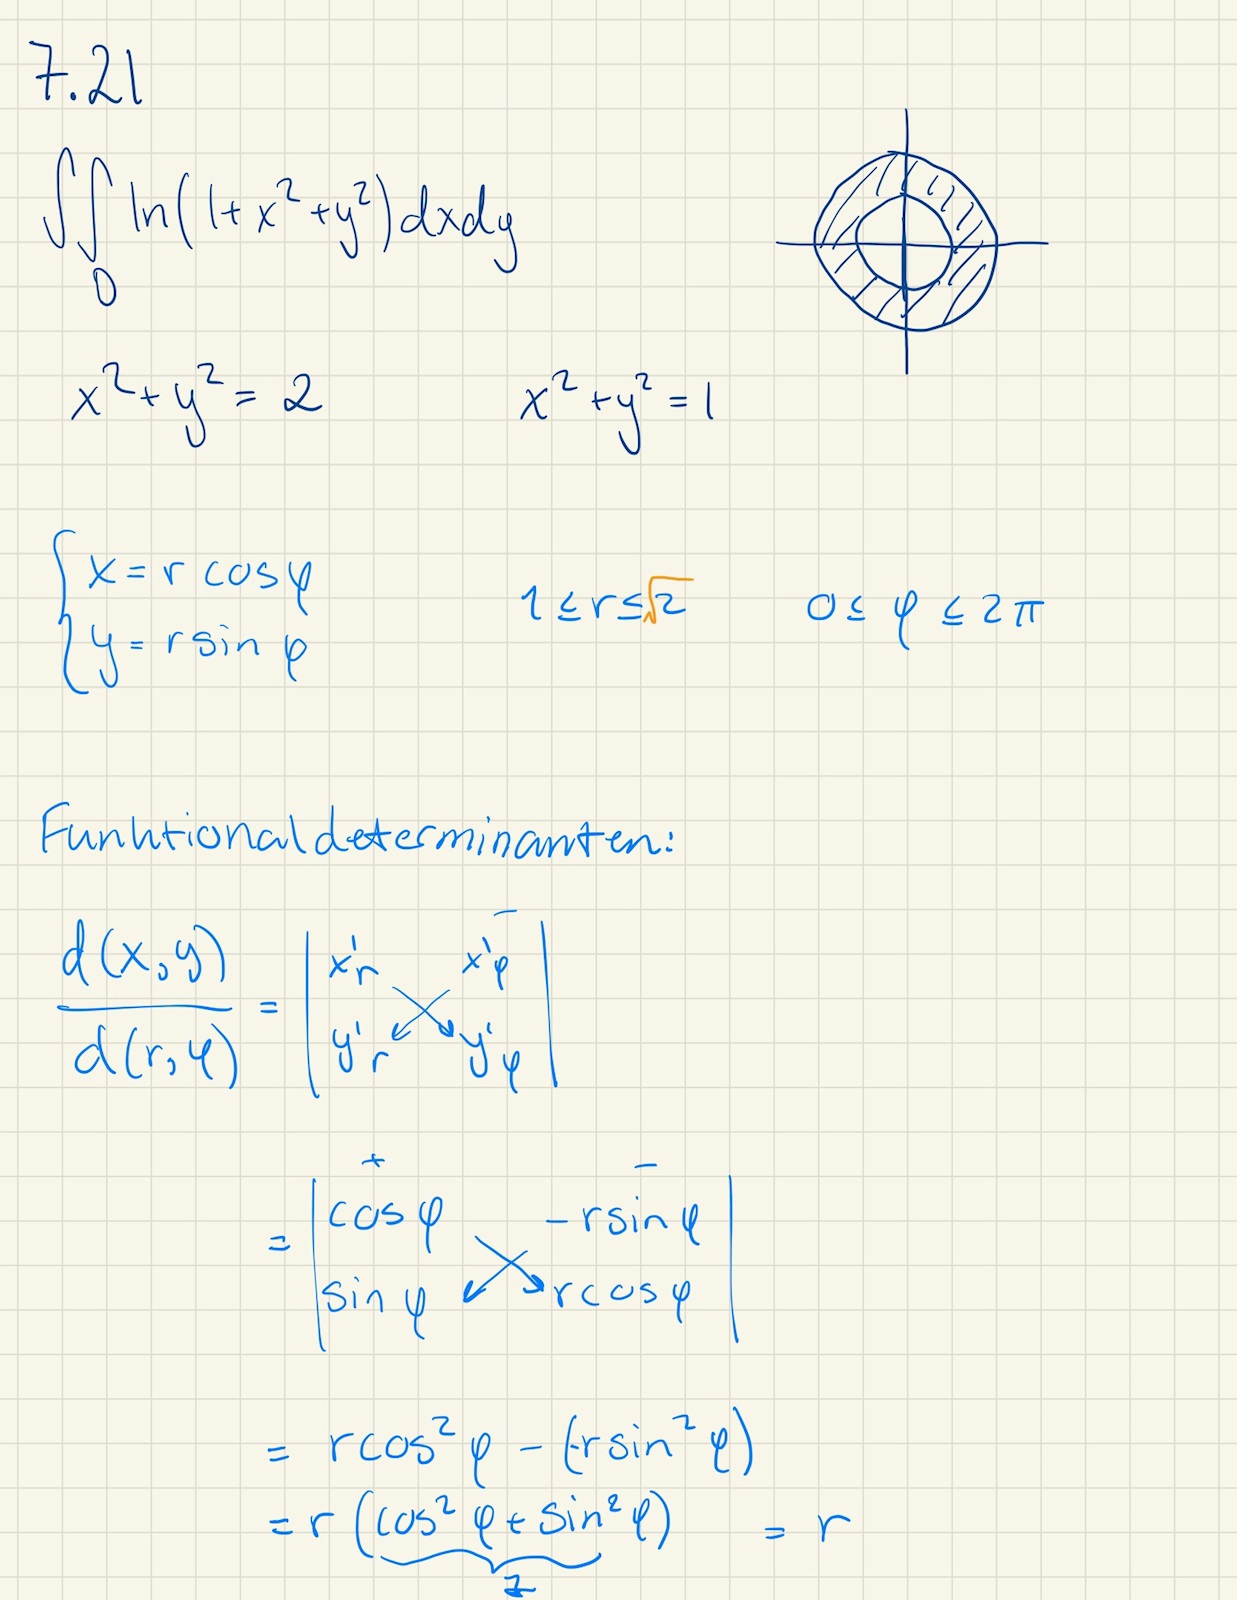 7.21
∬ ln(1+x²+y²)dxdy
D
x²+y² = 2 x²+y² = 1
{ x = r cosφ
{ y = r sin φ
1 ≤ r ≤ √2 0 ≤ φ ≤ 2π
Funktionaldeterminanten:
d(x,y) / d(r,φ) = | x'r x'φ |
| y'r y'φ |
+ −
= | cosφ −rsinφ |
| sinφ rcosφ |
= rcos²φ − (−rsin²φ)
= r (cos²φ + sin²φ) = r
1